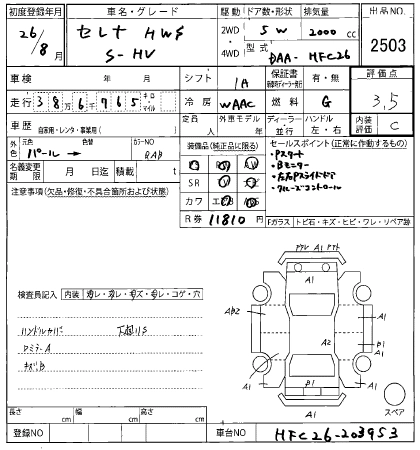 初度登録年月 車名・グレード 駆動 ドア数・形状 排気量 出品NO.
26/8月 セレナ HWS S-HV 2WD 4WD 5W 2000cc 2503
型式 DAA-HFC26
車検 年 月 シフト IA 保証書 有・無 評価点
走行 38万6765 キロ・マイル 冷房 WAAC 燃料 G 3.5
車歴 自家用・レンタ・事業用( ) 定員 人 外車モデル 年 ディーラー 並行 ハンドル 左・右 内装 評価 C
色 元色 パール→ 色替 カラーNO QAB
装備品(純正品に限る) セールスポイント(正常に作動するもの)
・Pスタート
・Bモニター
・左右Pスライドドア
・クルーズコントロール
名義変更期限 月 日迄 積載 t
SR
カワ
R券 11810円
注意事項(欠品・修復・不具合箇所および状態)
Fガラス トビ石・キズ・ヒビ・ワレ・リペア跡
A1
A1
検査員記入 内装 コゲ・穴
AB2
A1
A1
ハンドルカバー
下廻りS
A2
B1
A1
A1
B1
A1
スペア
長さ cm 幅 cm 高さ cm
登録NO 車台NO HFC26-203953